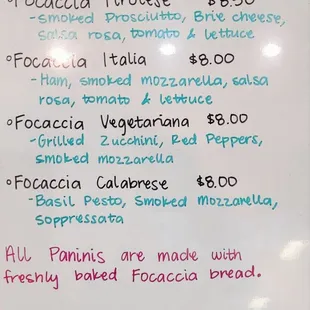 °Focaccia Tirolese $8.50
-smoked Prosciutto, Brie cheese,
salsa rosa, tomato & lettuce
°Focaccia Italia $8.00
-Ham, smoked mozzarella, salsa
rosa, tomato & lettuce
°Focaccia Vegetariana $8.00
-Grilled Zucchini, Red Peppers,
smoked mozzarella
°Focaccia Calabrese $8.00
-Basil Pesto, Smoked Mozzarella,
Soppressata
All Paninis are made with
freshly baked Focaccia bread.